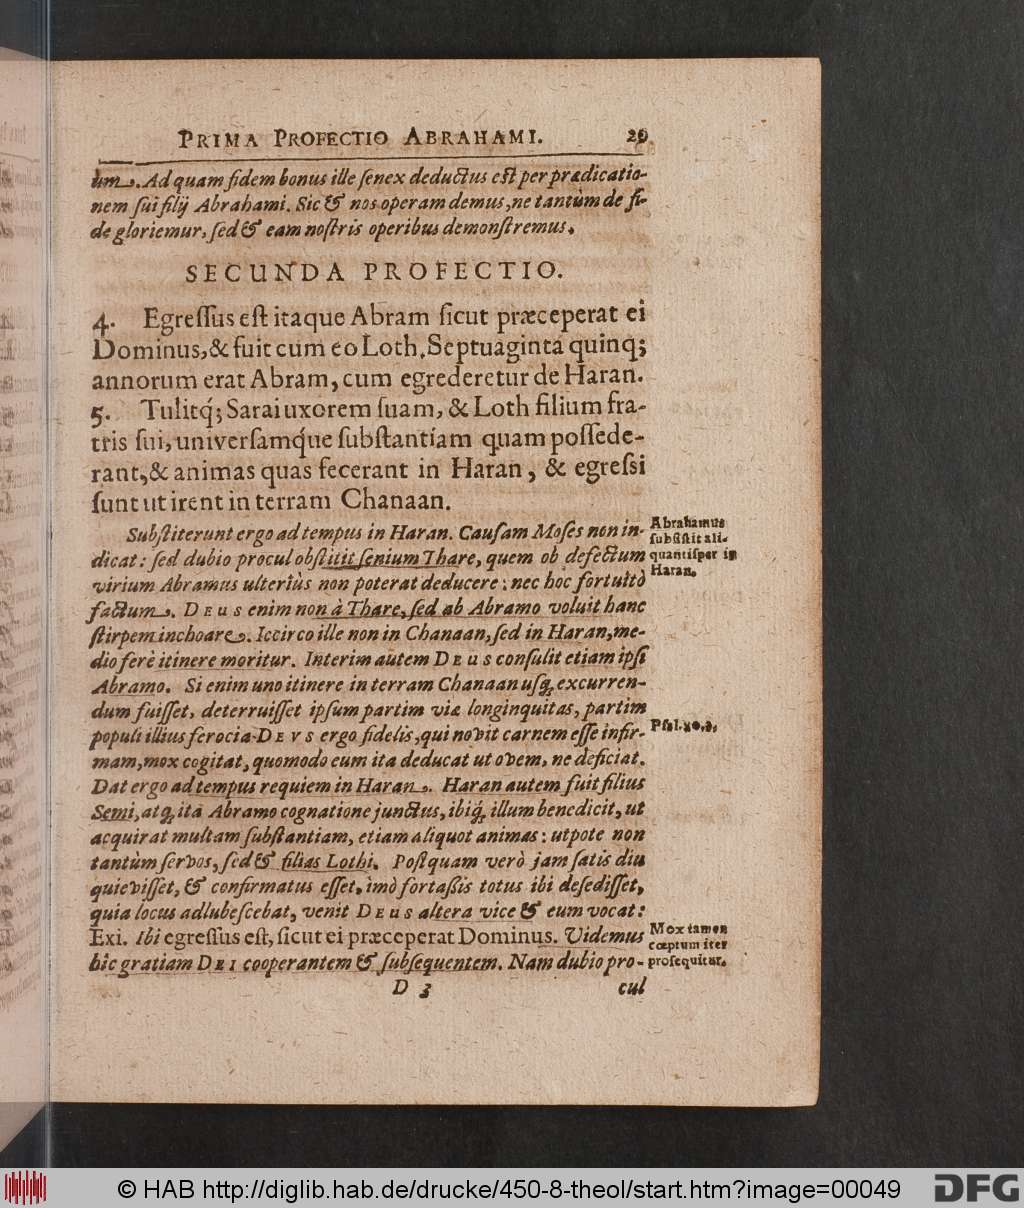 PRIMA PROFECTIO ABRAHAMI. 29
um. Ad quam fidem bonus ille ſenex deductus est per prædicatio-
nem ſui filij Abrahami. Sic & nos operam demus, ne tantùm de fi-
de gloriemur, ſed & eam noſtris operibus demonſtremus.
SECUNDA PROFECTIO.
4. Egreſſus eſt itaque Abram ſicut præceperat ei
Dominus, & fuit cum eo Loth. Septuaginta quinq;
annorum erat Abram, cum egrederetur de Haran.
5. Tulitq́; Sarai uxorem ſuam, & Loth filium fra-
tris ſui, univerſamq́ue ſubſtantiam quam poſſede-
rant, & animas quas fecerant in Haran, & egreſsi
ſunt ut irent in terram Chanaan.
Subſtiterunt ergo ad tempus in Haran. Cauſam Moſes non in-
dicat: ſed dubio procul obſtitit ſenium Thare, quem ob defectum
virium Abramus ulteriùs non poterat deducere: nec hoc fortuitò
factum. DEUS enim non à Thare, ſed ab Abramo voluit hanc
ſtirpem inchoare. Iccirco ille non in Chanaan, ſed in Haran, me-
dio ferè itinere moritur. Interim autem DEUS conſulit etiam ipſi
Abramo. Si enim uno itinere in terram Chanaan uſq; excurren-
dum fuiſſet, deterruiſſet ipſum partim viæ longinquitas, partim
populi illius ferocia. DEVS ergo fidelis, qui novit carnem eſſe infir-
mam, mox cogitat, quomodo eum ita deducat ut ovem, ne deficiat.
Dat ergo ad tempus requiem in Haran. Haran autem fuit filius
Semi, atq; ita Abramo cognatione junctus, ibiq́; illum benedicit, ut
acquirat multam ſubſtantiam, etiam aliquot animas: utpote non
tantùm ſervos, ſed & filias Lothi. Poſtquam verò jam ſatis diu
quieviſſet, & confirmatus eſſet, imò fortaſsis totus ibi deſediſſet,
quia locus adlubeſcebat, venit DEUS altera vice & eum vocat:
Exi. Ibi egreſſus eſt, ſicut ei præceperat Dominus. Videmus
hîc gratiam DEI cooperantem & ſubſequentem. Nam dubio pro-
D 3 cul
Abrahamus
ſubſiſtit ali-
quantiſper in
Haran.
Pſal. 80. 2.
Mox tamen
cœptum iter
proſequitur.
© HAB http://diglib.hab.de/drucke/450-8-theol/start.htm?image=00049
DFG